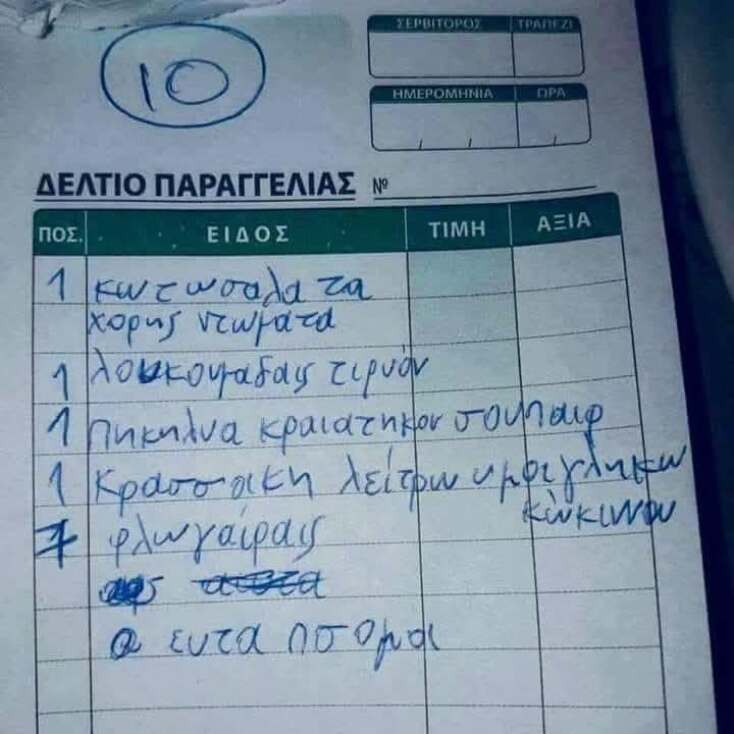 10
ΣΕΡΒΙΤΟΡΟΣ ΤΡΑΠΕΖΙ
ΗΜΕΡΟΜΗΝΙΑ ΩΡΑ
ΔΕΛΤΙΟ ΠΑΡΑΓΓΕΛΙΑΣ Nº
ΠΟΣ. ΕΙΔΟΣ ΤΙΜΗ ΑΞΙΑ
1 κωτωσαλατα
χορης ντωματα
1 λουκουμαδαις τιρυόν
1 πηκηλυα κραιατηκον σουπαιρ
1 Κρασσακη λείτρων ημοιγληκω
κώκινου
7 φλωγαίραις
ευτα ποσομαι